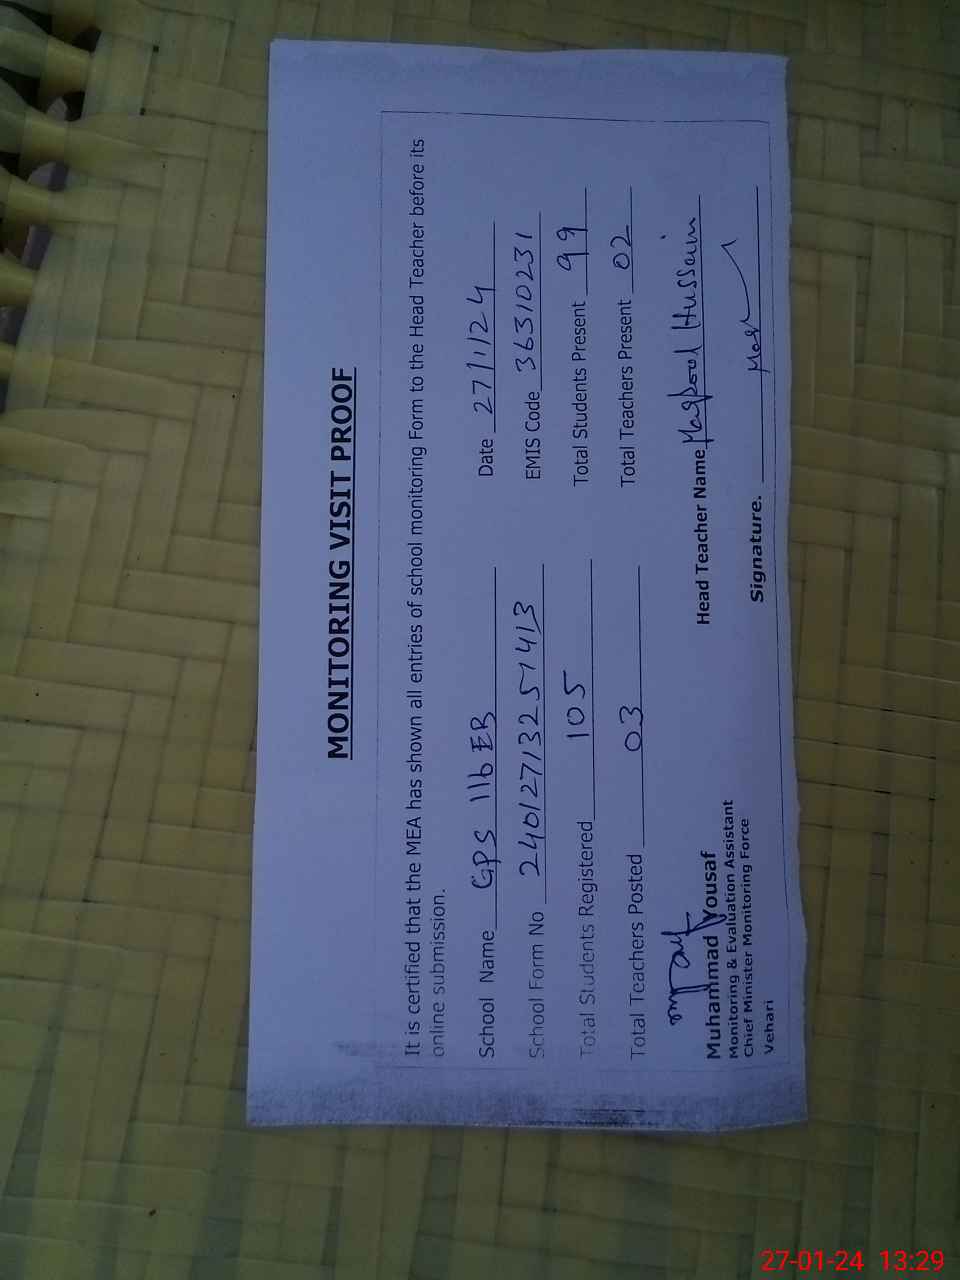 MONITORING VISIT PROOF
It is certified that the MEA has shown all entries of school monitoring Form to the Head Teacher before its
online submission.
School Name GPS 116 EB Date 27/1/24
School Form No 240127132251413 EMIS Code 36310231
Total Students Registered 105 Total Students Present 99
Total Teachers Posted 03 Total Teachers Present 02
Muhammad Yousaf
Monitoring & Evaluation Assistant
Chief Minister Monitoring Force
Vehari
Head Teacher Name Maqbool Hussain
Signature.
27-01-24 13:29